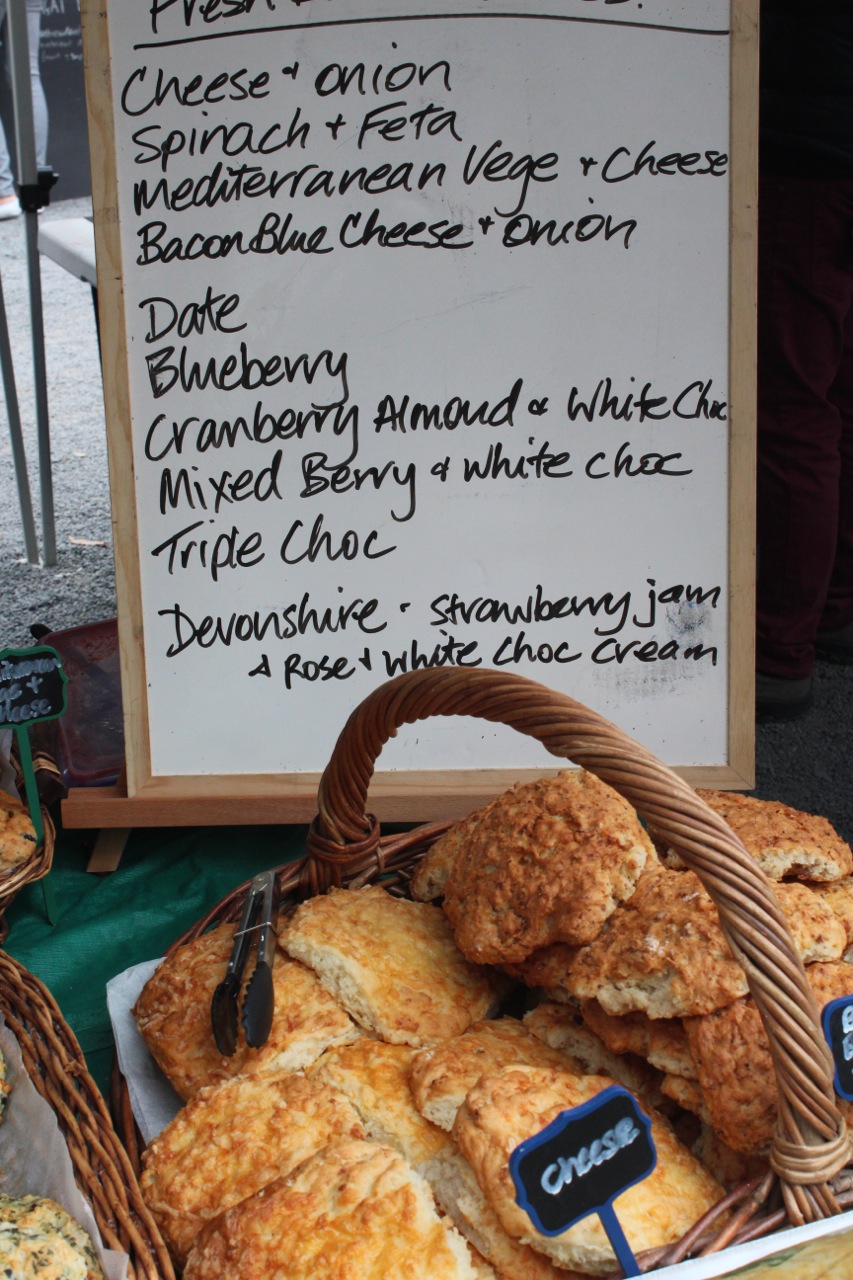 Fresh
Cheese & onion
Spinach + Feta
Mediterranean Vege + Cheese
Bacon Blue Cheese + onion
Date
Blueberry
Cranberry Almond & White Choc
Mixed Berry & white choc
Triple Choc
Devonshire - strawberry jam
& Rose + white choc cream
cheese